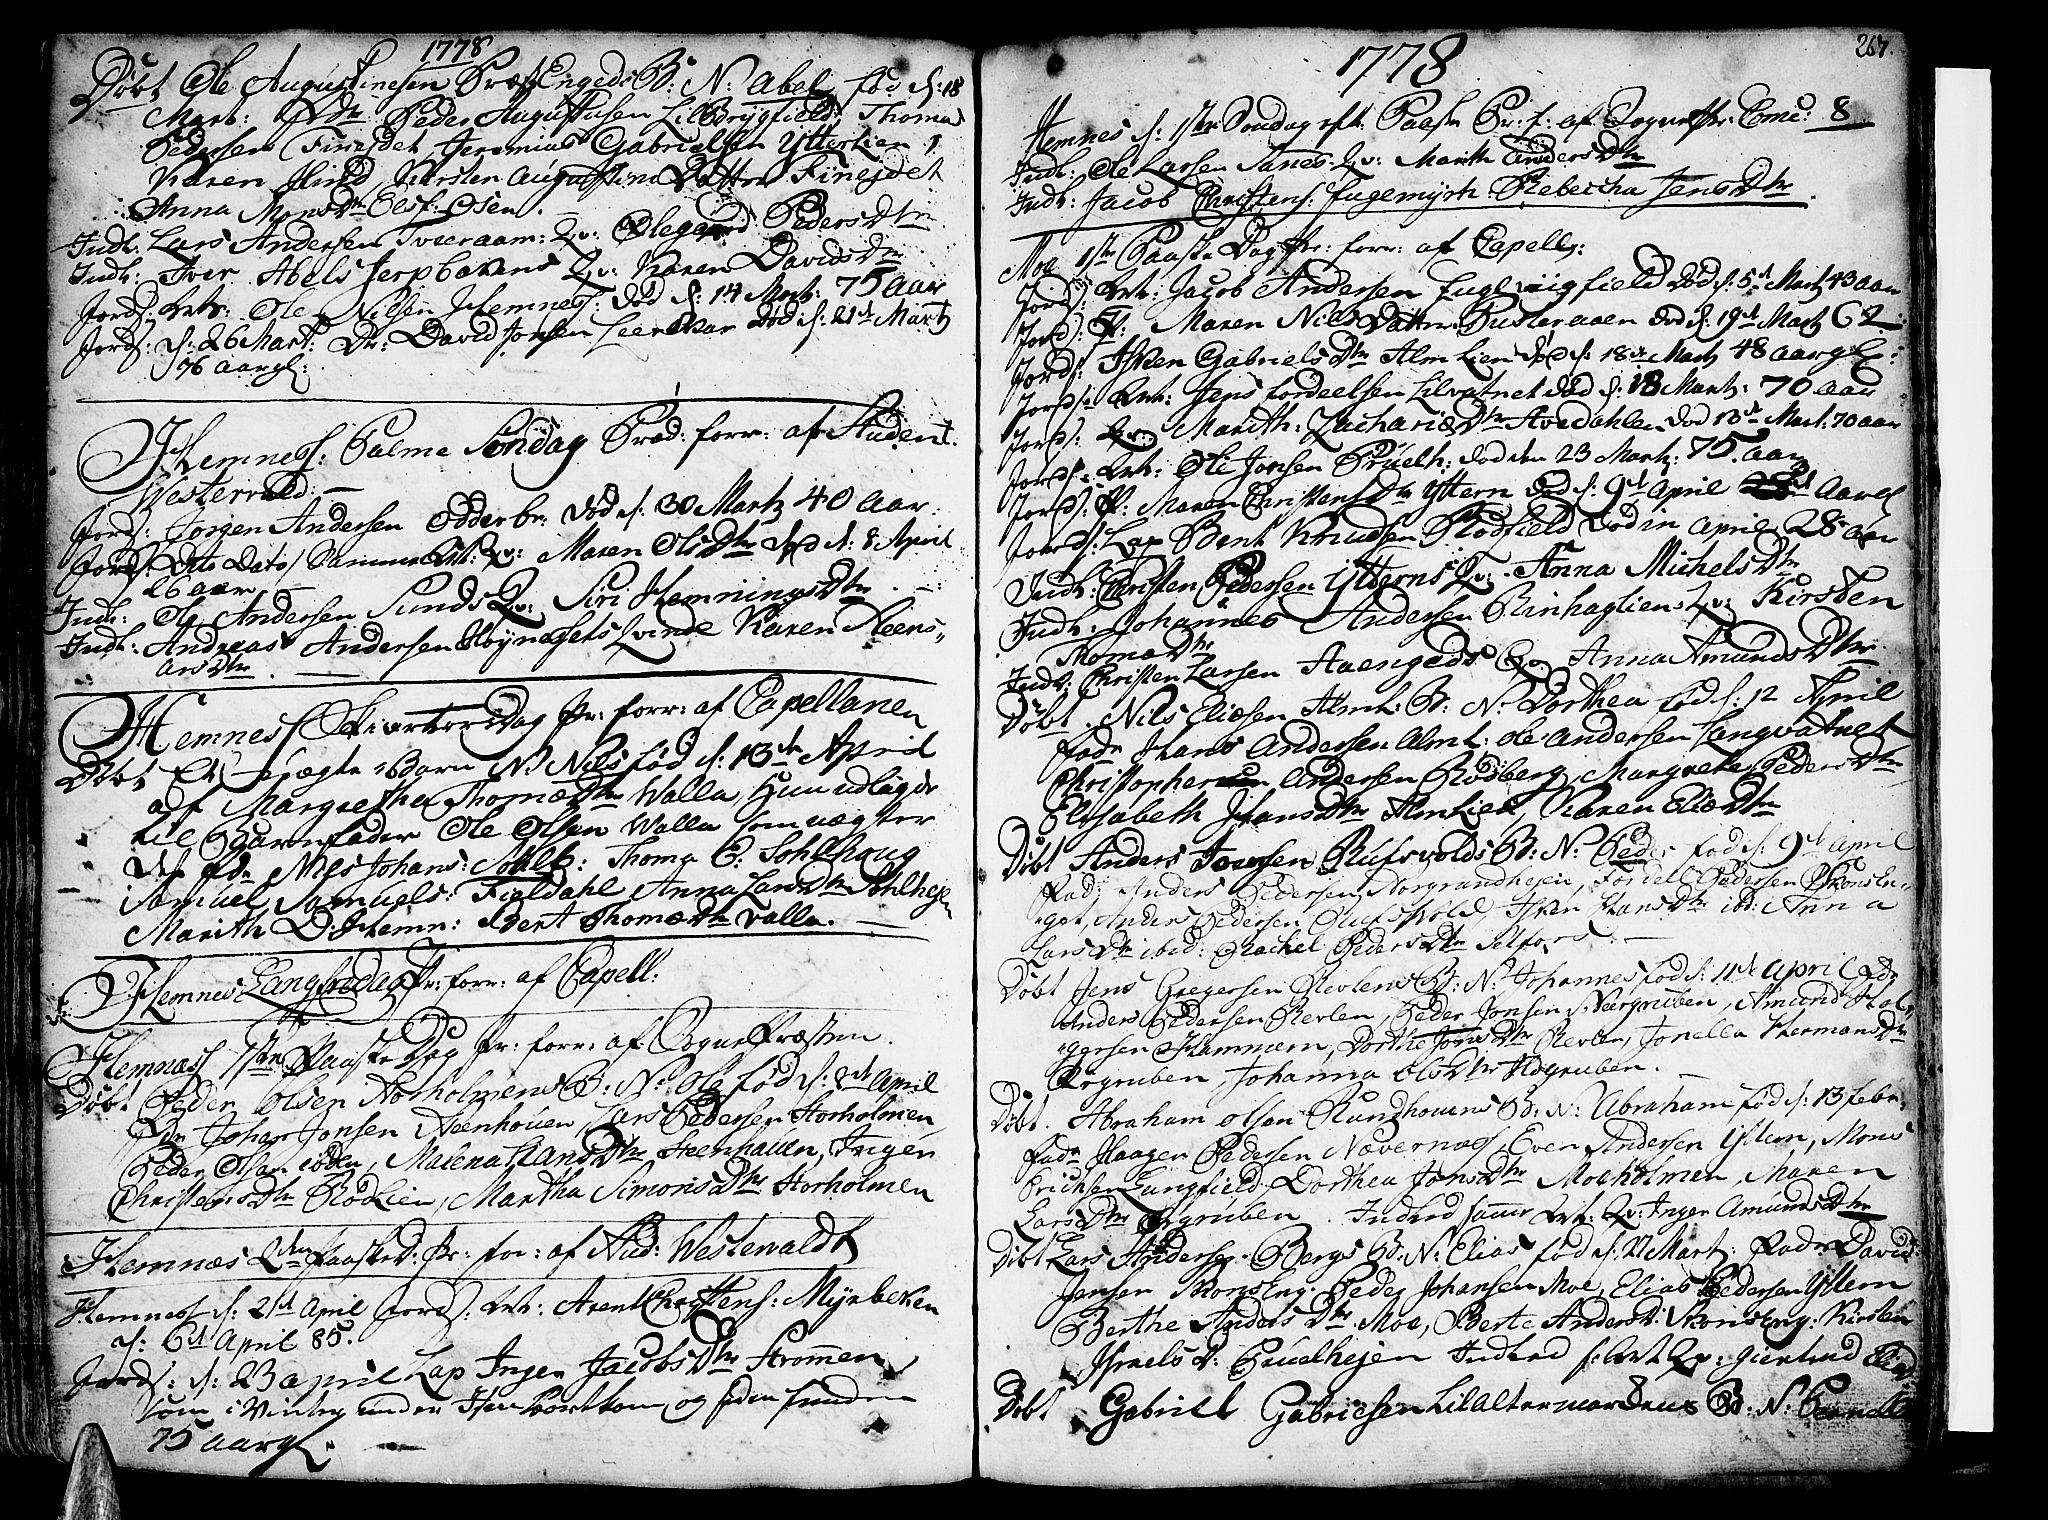 1778
Døbt Ole Augustinesen Præst Engeds B: N: Abel fød d: 18
Mart: Fdr Peder Augustusen Lilbrygfield, Thomas
Pedersen Finejdet, Jeremias Gabrielsen Ytterlien,
Karen Hind, Kirsten Augustini Datter Finejdet
Anna MonsDtr Olsf: Osen.
Indl: Lars Andersen Tveraam: Qv: Olegaard PedersDtr
Indl: Iver Abels Jerpbakens Qv: Karen DavidsDtr
Jords: Art: Ole Nilsen Hemnes: død d: 14 Mart: 75 aar
Jord: d: 26 Mart: Dr: David Jonsen Leerskar død d: 21d Martz
76 aar gl:
Hemness: Palme Søndag Præd: forr: af Student
Westervald: —
Jords: Jørgen Andersen Odderbr: død d: 30 Martz 40 aar.
Jords: Dito Dato / Samme Qv: Maren OlsDtr død d: 8 April
26 aar —
Indl: Ole Andersen Sunds Qv: Siri HemningsDtr. —
Indl: Andreas Andersen Høynesets Qvinde Karen Steens-
arsDtr. —
Hemness Skiertorsdag Pr: forr: af Capellanen
Døbt Et uægte Barn N: Nils fød d: 13de April
af Margrethe ThomæDtr Walla, Hun udlagde
til Barnefader Ole Olsen Walla som nægter
det fdr Niels Johans: Sohlb: Thoma C: Sohlhoug
Samuel Samuels: Fieldahl Anna LarsDtr Sohlhejen
Marith D: Hemn: Idert ThomæDtr Valla. —
Hemness Langfredag Pr: forr: af Capell:
Hemnæss 1ste Paaske Dag Pr: forr: af Sogne Præsten.
Døbt Peder Olsen Storholmens B: N: Ole fød d: 2d April
Fdr Johan Jonsen Steenhouen, Lars Pedersen Storholmen
Peder Olsen ibden, Malena HansDtr Steenhauen, Inger
ChristensDtr Rødlien, Martha SimonsDtr Storholmen
Hemnæs 2den PaaskeD: Pr: for: af Stud: Westewaldt
Hemness d: 21d April Jords: Art: Arent Christens: Myrbeken
d: 6d April 85.
Jords: d: 23 april Lap Inger JacobsDtr Strømen
som i Vinter under Isen bortkom og siden funden
75 aar gl:
267.
1778
Hemnes d: 1ste Søndag eft: Paask Pr: f: af Sogneptr: Comc: 8
Indl: Ole Larsen Sanes Qv: Marith AndersDtr
Indl: Jacob Christens: Fugemyrh Rebecha JensDtr.
Moe 1ste Paaske Dag Pr: forr: af Capell:
Jords: Art: Jacob Andersen Fuglviigfield død d: 5d Martz 43 aar
Jords: P: Maren Nils Datter Busteraaen død d: 19d Martz 62
Jords: Isken GabrielsDtr Almlien død d: 18d Martz 48 aar gl:
Jords: Art: Jens Fordeelsen Lilvatnet død d: 18 Martz: 70 aar
Jords: Qv: Marith ZachariæDtr Avedahlen død 13d Mart: 70 aar
Jords: Art: Ole Jonsen Pruelh: død den 23 Martz: 75 aar
Jords: P: Maren ChristensDtr Yttern død d: 9d April aar gl
Jords: Lap Bent Knudsen Rødfield død in April 28 aar
Indl: Christen Pedersen Ytterns Qv: Anna MichelsDtr
Indl: Johannes Andersen Binhaglien Qv: Kirsten
ThomæDtr
Indl: Christen Larsen Aaengeds Qv: Anna AmundsDtr
Døbt. Nils Eliæsen Almli: B: N: Dorthea fød d: 12 April
Fadr Hans Andersen Almli: Ole Andersen Langvatnet
Christopher Andersen Rødberg, Margrethe PedersDtr
Elisabeth HansDtr Almlien, Karen EliæDtr
Døbt Anders Iversen Rufsvolds B: N: Peder fød d: 9d April
Fad: Anders Pedersen Norgrandhejen, Fordell Pedersen Skonsen-
get, Anders Pedersen Rufsvold, Isken HansDtr ibd: Anna
LarsDtr ibid: Rachel PedersDtr Selfors. —
Døbt Jens Gregersen Revlens B: N: Johannes fød d: 11d April Fdr
Anders Pedersen Revlen, Peder Jonsen Neergruben, Amund Hol-
gersen Hammern, Dorthe JonsDtr Revlen, Jonella HermansDtr
Ørgruben, Johanna OlsDtr Ørgruben. —
Døbt. Abraham Olsen Rundhouens B: N: Abraham fød d: 13 Febr:
Fadr Haagen Pedersen Nævernæss, Even Andersen Yttern, Mons
Ericksen Lungfield, Dorthea JonsDtr Moeholmen, Maren
LarsDtr Ørgruben. Indled samme Art: Qv: Inger AmundsDtr
Døbt Lars Andersen Bergs B: N: Elias fød d: 27 Mart: Fadr David
Jensen Skonseng: Peder Johansen Moe, Elias Pedersen Yttern
Berthe AndersDtr Moe, Berte AndersD: Skonseng: Kirsten
IsraelsD: Gruelhejen Indled s: Art Qv: Giertrud
Døbt Gabriel Gabrielsen Lilaltermardens B: N: